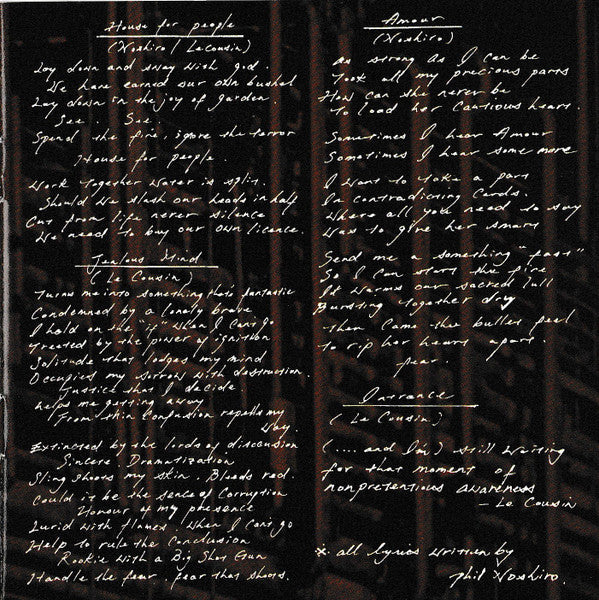 House for people
(Noshiro / Lecousin)
Lay down and sway with god.
We have earned our own bushel
Lay down in the joy of garden.
See See.
Spend the fire, ignore the terror
House for people.
Work together water is split.
Should we slash our heads in half
Cut from life never silence
We need to buy our own licence.
Jealous Mind
(Le Cousin)
Turns me into something that's fantastic
Condemned by a lonely brave
I hold on the "i" when I can't go
Treated by the power of ignition
Solitude that lodges my mind
Occupies my sorrow with destruction.
Justice that I decide
helps me getting away
From skin Confusion repells my
way.
Extincted by the lords of discussion
Sincere Dramatization
Sling shoots my skin. Bleeds red.
Could it be the sense of Corruption
Honour of my presence
Lurid with flames. When I can't go
Help to rule the Conclusion
Rookie with a Big Shot Gun
Handle the fear. fear that shoots.
Amour
(Noshiro)
As strong as I can be
Took all my precious parts
How can she never be
To load her cautious heart.
Sometimes I hear Amour
Sometimes I hear some more
I want to take a part
In contradicting Cards.
Where all you need to say
Was to give her smart
Send me a something "past"
So I can start the fire
It warms our sacred lull
Bursting together dry
Then came the bullet feel
to rip her hearts apart.
fear.
Intrance
(Le Cousin)
(.... and I'm) still waiting
for that moment of
nonpretentious awareness
— Le Cousin
* all lyrics written by
Phil Noshiro.